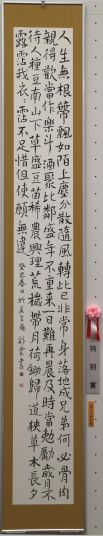 人生無根蔕飄如陌上塵分散隨風轉此已非常身落地成兄弟何必骨肉
親得歡當作樂斗酒聚比鄰盛年不重来一日難再晨及時當勉勵歲月不
待人種豆南山下草盛豆苗稀晨興理荒穢帶月荷鋤歸道狹草木長夕
露霑我衣〻霑不足惜但使願無違 癸巳春日於
特別賞